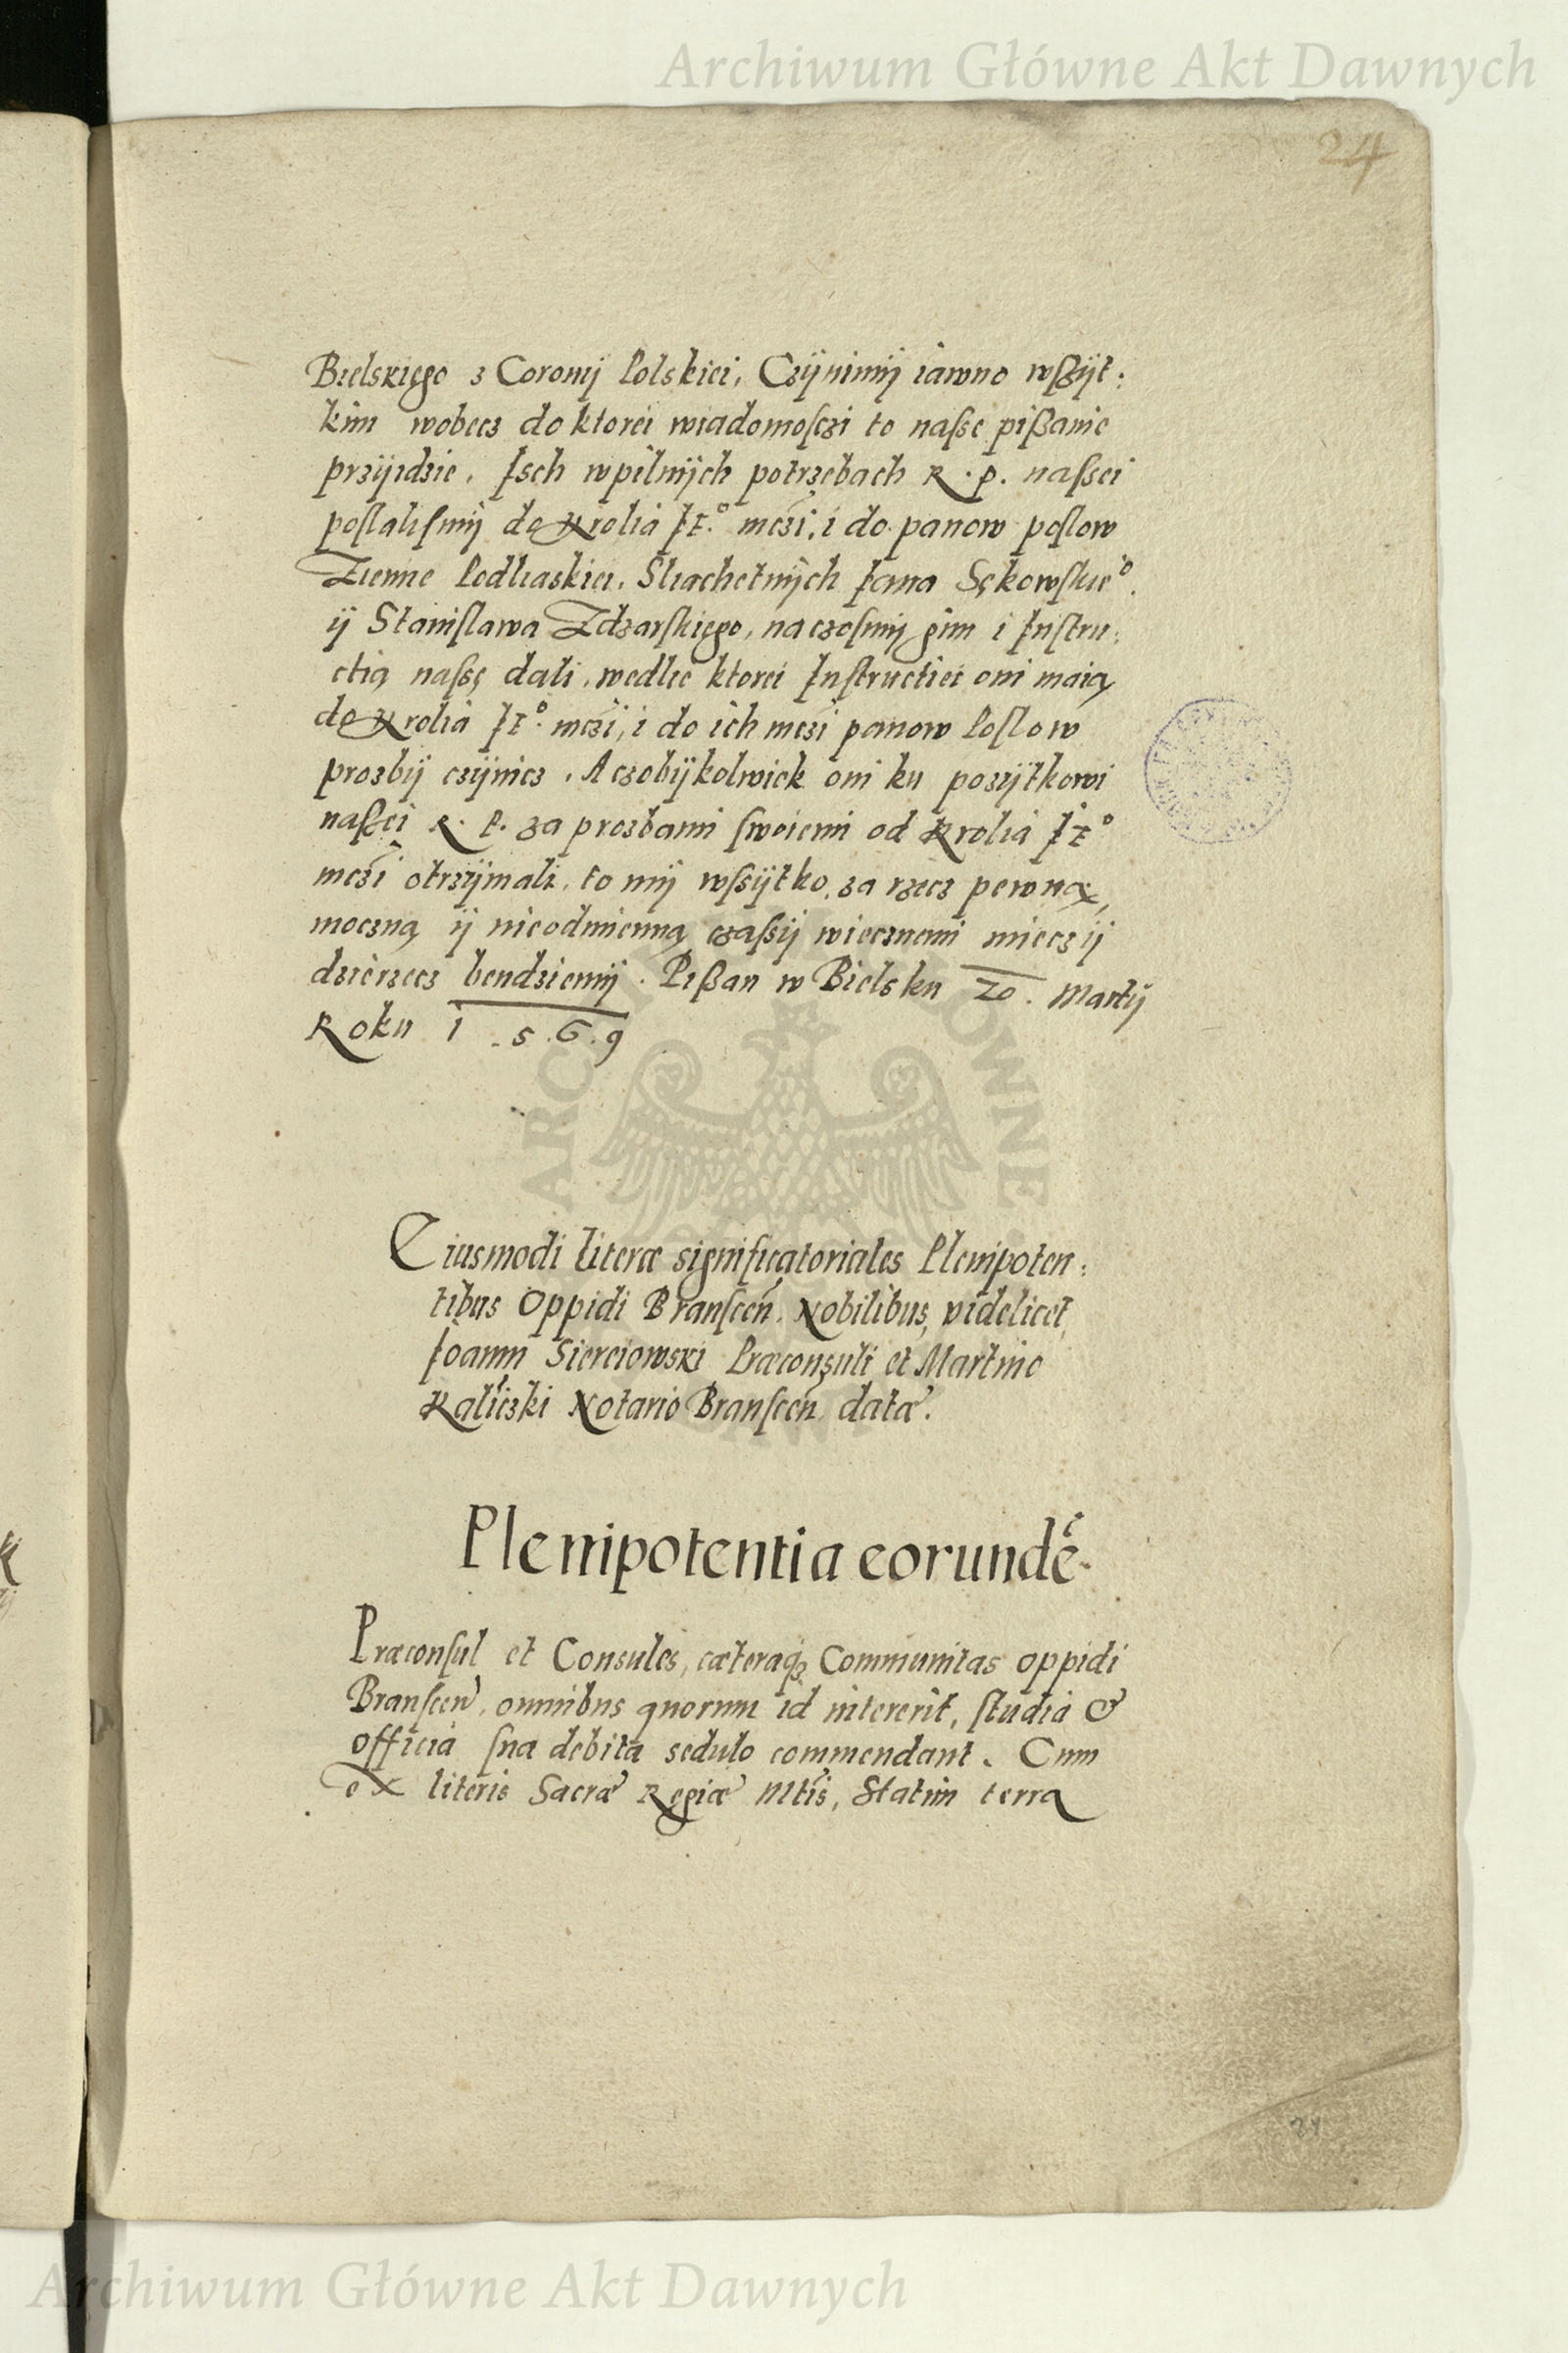 Archiwum Główne Akt Dawnych
24
Bielskięgo z Coronij Polskiei, Czijnimij iawno wszijt:
kim wobecz do ktorei wiadomosczi to nasse pißanie
przijidzie, Isch wpilnijch potrzebach R. P. nassei
poslalismij do Krolia Iᵉº mczi, i do panow poslow
Ziemie Podliaskiei, Sliachetnijch Jana Sękowskieº
ij Stanislawa Zdzarskięgo, na czosmij gim i Instru:
ctią nassę dali, wedlie ktorei Instructiei oni maią
do Krolia Iᵉº mczi, i do ich mczi panow Poslow
prozbij czijnicz, A czobijkolwiek oni ku pozijtkowi
naszei R. P. za prozbami swoiemi od Krolia Iᵉº
mczi otrzijmali, to mij wssijtko, za rzecz pewną,
moczną ij nieodmienną czassij wiecznemi miecz ij
dzierzecz bendziemij. Pißan w Bielsku 20. Martij
Roku 1.5.6.9
Eiusmodi literæ significatoriales Plenipoten:
tibus Oppidi Branscen̄, Nobilibus, videlicet,
Joanni Sierciowski Præconsuli et Martino
Kaliczki Notario Branscen̄ datæ.
Plenipotentia eorundē.
Præconsul et Consules, cæteraqꝫ Communitas oppidi
Branscen̄, omnibus quorum id intererit, studia &
officia sua debita sedulo commendant. Cum
ex literis Sacræ Regiæ Mtis, Statim terra
24
Archiwum Główne Akt Dawnych